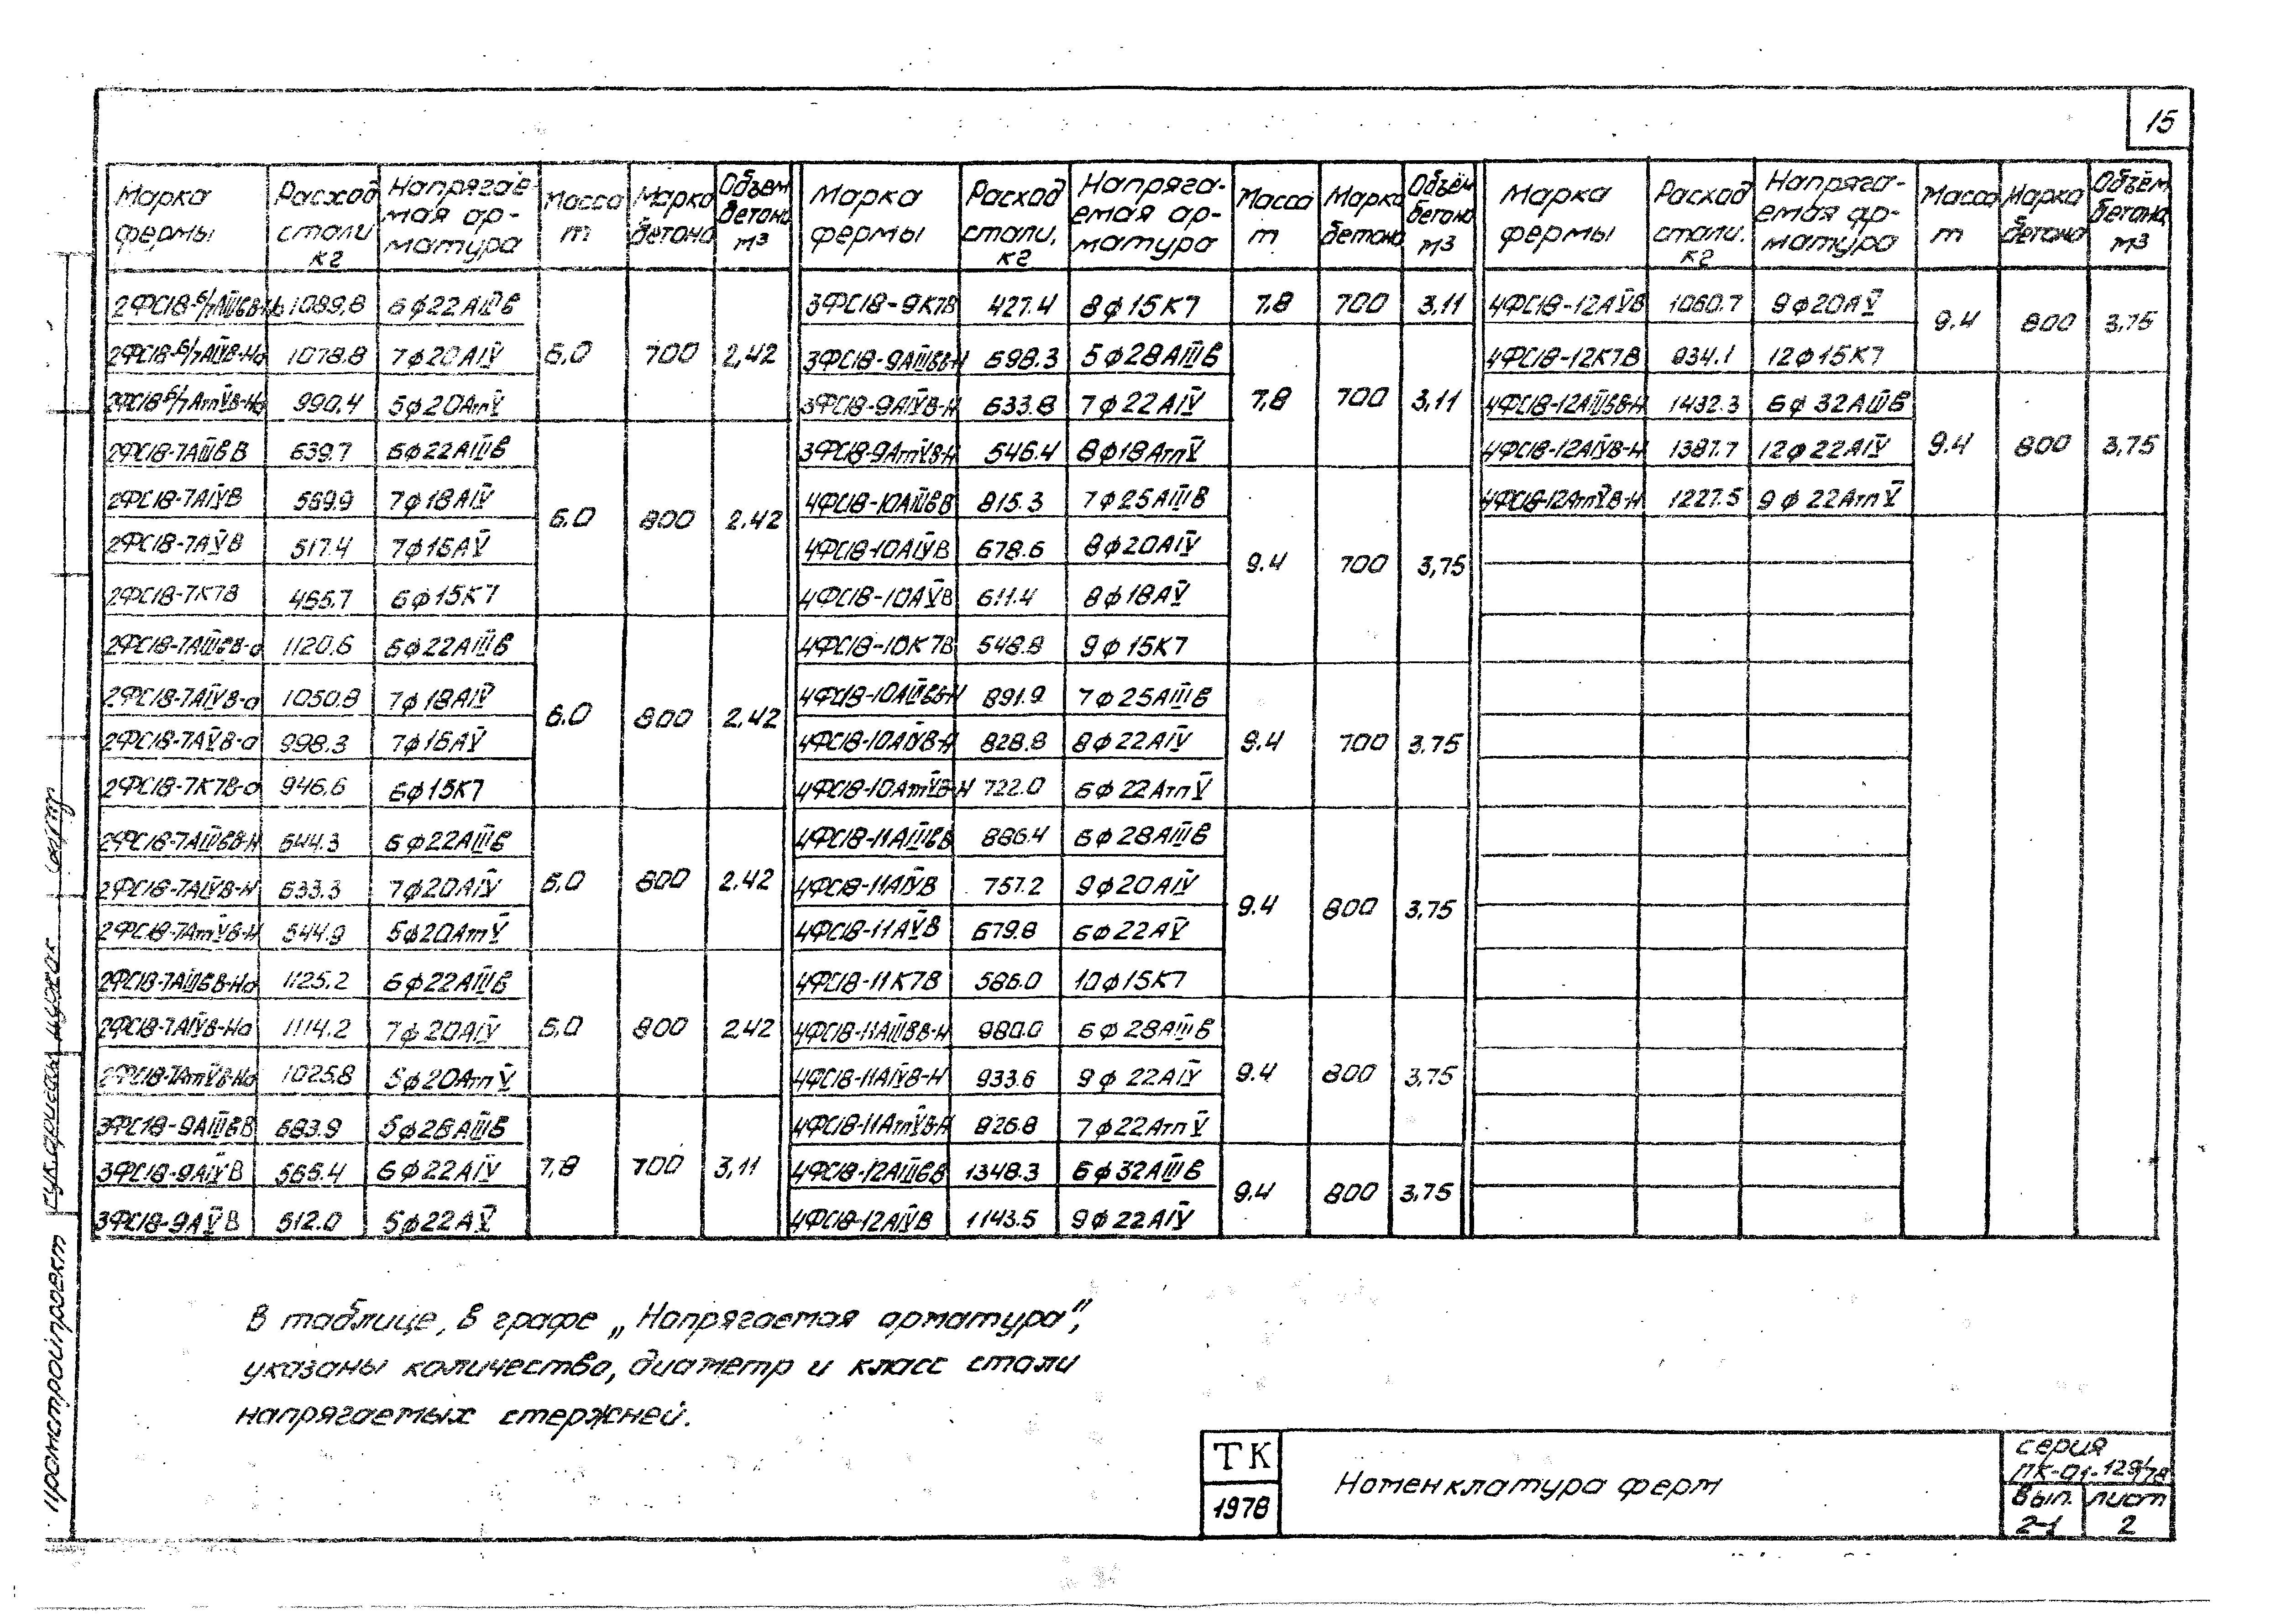 15
Марка фермы | Расход стали кг | Напрягаемая арматура | Масса т | Марка бетона | Объем бетона м³
2ФС18-6/7АIIIвВ-Нб | 1089,8 | 6ф22АIIIв | 6,0 | 700 | 2,42
2ФС18-6/7АIVВ-На | 1078.8 | 7ф20АIV
2ФС18-6/7АтVВ-На | 990.4 | 5ф20АтV
2ФС18-7АIIIвВ | 639.7 | 6ф22АIIIв | 6.0 | 800 | 2.42
2ФС18-7АIVВ | 569.9 | 7ф18АIV
2ФС18-7АVВ | 517.4 | 7ф16АV
2ФС18-7К7В | 465.7 | 6ф15К7
2ФС18-7АIIIвВ-а | 1120.6 | 6ф22АIIIв | 6.0 | 800 | 2.42
2ФС18-7АIVВ-а | 1050.8 | 7ф18АIV
2ФС18-7АVВ-а | 998.3 | 7ф16АV
2ФС18-7К7В-а | 946.6 | 6ф15К7
2ФС18-7АIIIвВ-Н | 644.3 | 6ф22АIIIв | 6.0 | 800 | 2.42
2ФС18-7АIVВ-Н | 633.3 | 7ф20АIV
2ФС18-7АтVВ-Н | 544.9 | 5ф20АтV
2ФС18-7АIIIвВ-На | 1125.2 | 6ф22АIIIв | 6.0 | 800 | 2.42
2ФС18-7АIVВ-На | 1114.2 | 7ф20АIV
2ФС18-7АтVВ-На | 1025.8 | 5ф20АтV
3ФС18-9АIIIвВ | 683.9 | 5ф28АIIIв | 7,8 | 700 | 3,11
3ФС18-9АIVВ | 565.4 | 6ф22АIV
3ФС18-9АVВ | 512.0 | 5ф22АV
Марка фермы | Расход стали, кг | Напрягаемая арматура | Масса т | Марка бетона | Объём бетона м³
3ФС18-9К7В | 427.4 | 8ф15К7 | 7,8 | 700 | 3,11
3ФС18-9АIIIвВ-Н | 698.3 | 5ф28АIIIв | 7,8 | 700 | 3,11
3ФС18-9АIVВ-Н | 633.8 | 7ф22АIV
3ФС18-9АтVВ-Н | 546.4 | 8ф18АтV
4ФС18-10АIIIвВ | 815.3 | 7ф25АIIIв | 9.4 | 700 | 3,75
4ФС18-10АIVВ | 678.6 | 8ф20АIV
4ФС18-10АVВ | 611.4 | 8ф18АV
4ФС18-10К7В | 548.8 | 9ф15К7
4ФС18-10АIIIвВ-Н | 891.9 | 7ф25АIIIв | 9.4 | 700 | 3.75
4ФС18-10АIVВ-Н | 828.8 | 8ф22АIV
4ФС18-10АтVВ-Н | 722.0 | 6ф22АтV
4ФС18-11АIIIвВ | 886.4 | 6ф28АIIIв | 9.4 | 800 | 3,75
4ФС18-11АIVВ | 757.2 | 9ф20АIV
4ФС18-11АVВ | 679.8 | 6ф22АV
4ФС18-11К7В | 586.0 | 10ф15К7
4ФС18-11АIIIвВ-Н | 980.0 | 6ф28АIIIв | 9.4 | 800 | 3,75
4ФС18-11АIVВ-Н | 933.6 | 9ф22АIV
4ФС18-11АтVВ-Н | 826.8 | 7ф22АтV
4ФС18-12АIIIвВ | 1348.3 | 6ф32АIIIв | 9.4 | 800 | 3,75
4ФС18-12АIVВ | 1143.5 | 9ф22АIV
Марка фермы | Расход стали, кг | Напрягаемая арматура | Масса т | Марка бетона | Объём бетона, м³
4ФС18-12АVВ | 1060.7 | 9ф20АV | 9.4 | 800 | 3,75
4ФС18-12К7В | 934.1 | 12ф15К7
4ФС18-12АIIIвВ-Н | 1432.3 | 6ф32АIIIв | 9.4 | 800 | 3,75
4ФС18-12АIVВ-Н | 1387.7 | 12ф22АIV
4ФС18-12АтVВ-Н | 1227.5 | 9ф22АтV
В таблице, в графе „Напрягаемая арматура",
указаны количество, диаметр и класс стали
напрягаемых стержней.
ТК
1978
Номенклатура ферм
серия
ПК-01-129/78
Вып. лист
2-1 2
Промстройпроект